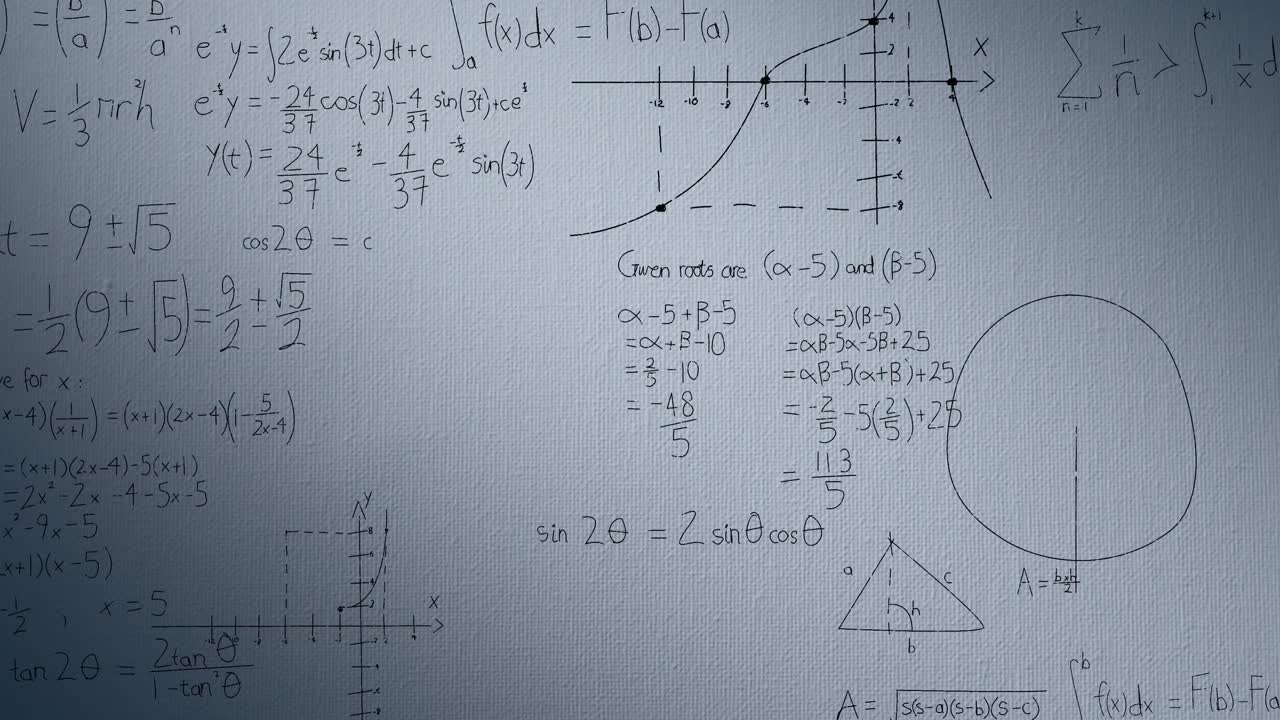 = (b/a) = b/aⁿ
∫ₐ f(x)dx = F(b)-F(a)
V = 1/3 πr²h
y = ∫2e sin(3t)dt+c
y = -24/37 cos(3t)-4/37 sin(3t)+ce
Y(t) = 24/37 e - 4/37 e sin(3t)
t = 9 ± √5
cos2θ = c
= 1/2 (9 ± √5) = 9/2 ± √5/2
e for x :
x-4)(1/(x+1)) = (x+1)(2x-4)(1-5/(2x-4))
= (x+1)(2x-4)-5(x+1)
= 2x²-2x -4-5x-5
x²-9x-5
x+1)(x-5)
-1/2 , x = 5
tan2θ = 2tanθ/(1-tan²θ)
4
2
X
-12 -10 -8 -6 -4 -2 2 4
-2
-4
-6
-8
k Σ n=1 1/n > ∫₁ᵏ⁺¹ 1/x d
Given roots are (α-5) and (β-5)
α-5+β-5
=α+β-10
=2/5-10
=-48/5
(α-5)(β-5)
=αβ-5α-5β+25
=αβ-5(α+β)+25
=-2/5-5(2/5)+25
=113/5
sin 2θ = 2 sinθcosθ
y
8
6
4
2
X
a
c
h
b
A = bxh/2
A = √s(s-a)(s-b)(s-c)
∫ᵇ f(x)dx = F(b)-F(a